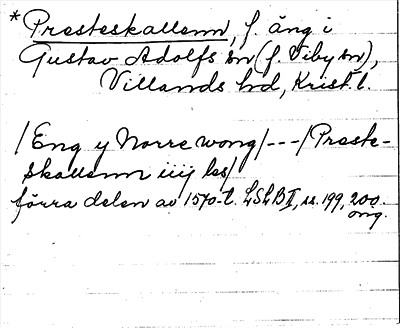 *Presteskallenn, f. äng i
Gustav Adolfs sn (f. Viby sn),
Villands hd, Krist. l.
/Eng y Norre wong/---/Preste-
skallenn iiij les/
förra delen av 1570-t. LSLB II, ss. 199, 200.
orig.